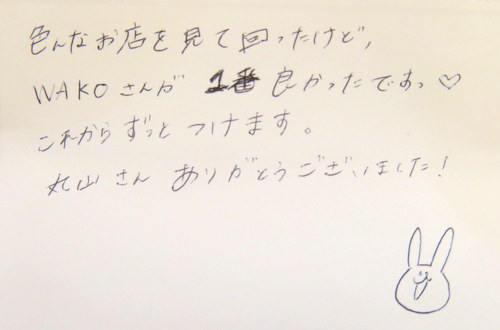 色んなお店を見て回ったけど,
WAKOさんが 1番 良かったですっ♡
これから ずっと つけます。
丸山さん ありがとうございました!